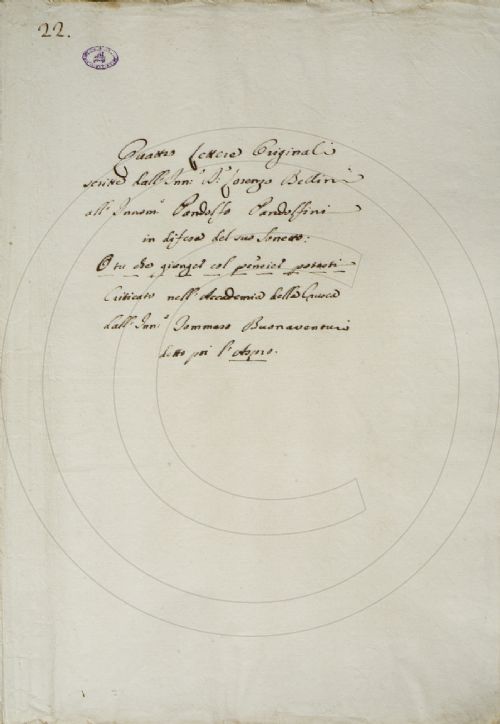 22.
Quattro Lettere Originali
scritte dall' Inn.º S.r Lorenzo Bellini
all' Innom.º Pandolfo Pandolfini
in difesa del suo Sonetto:
O tu che giunger col pensier potesti
Criticato nell' Accademia della Crusca
dall' Inn.º Tommaso Buonaventuri
detto poi l' Aspro.